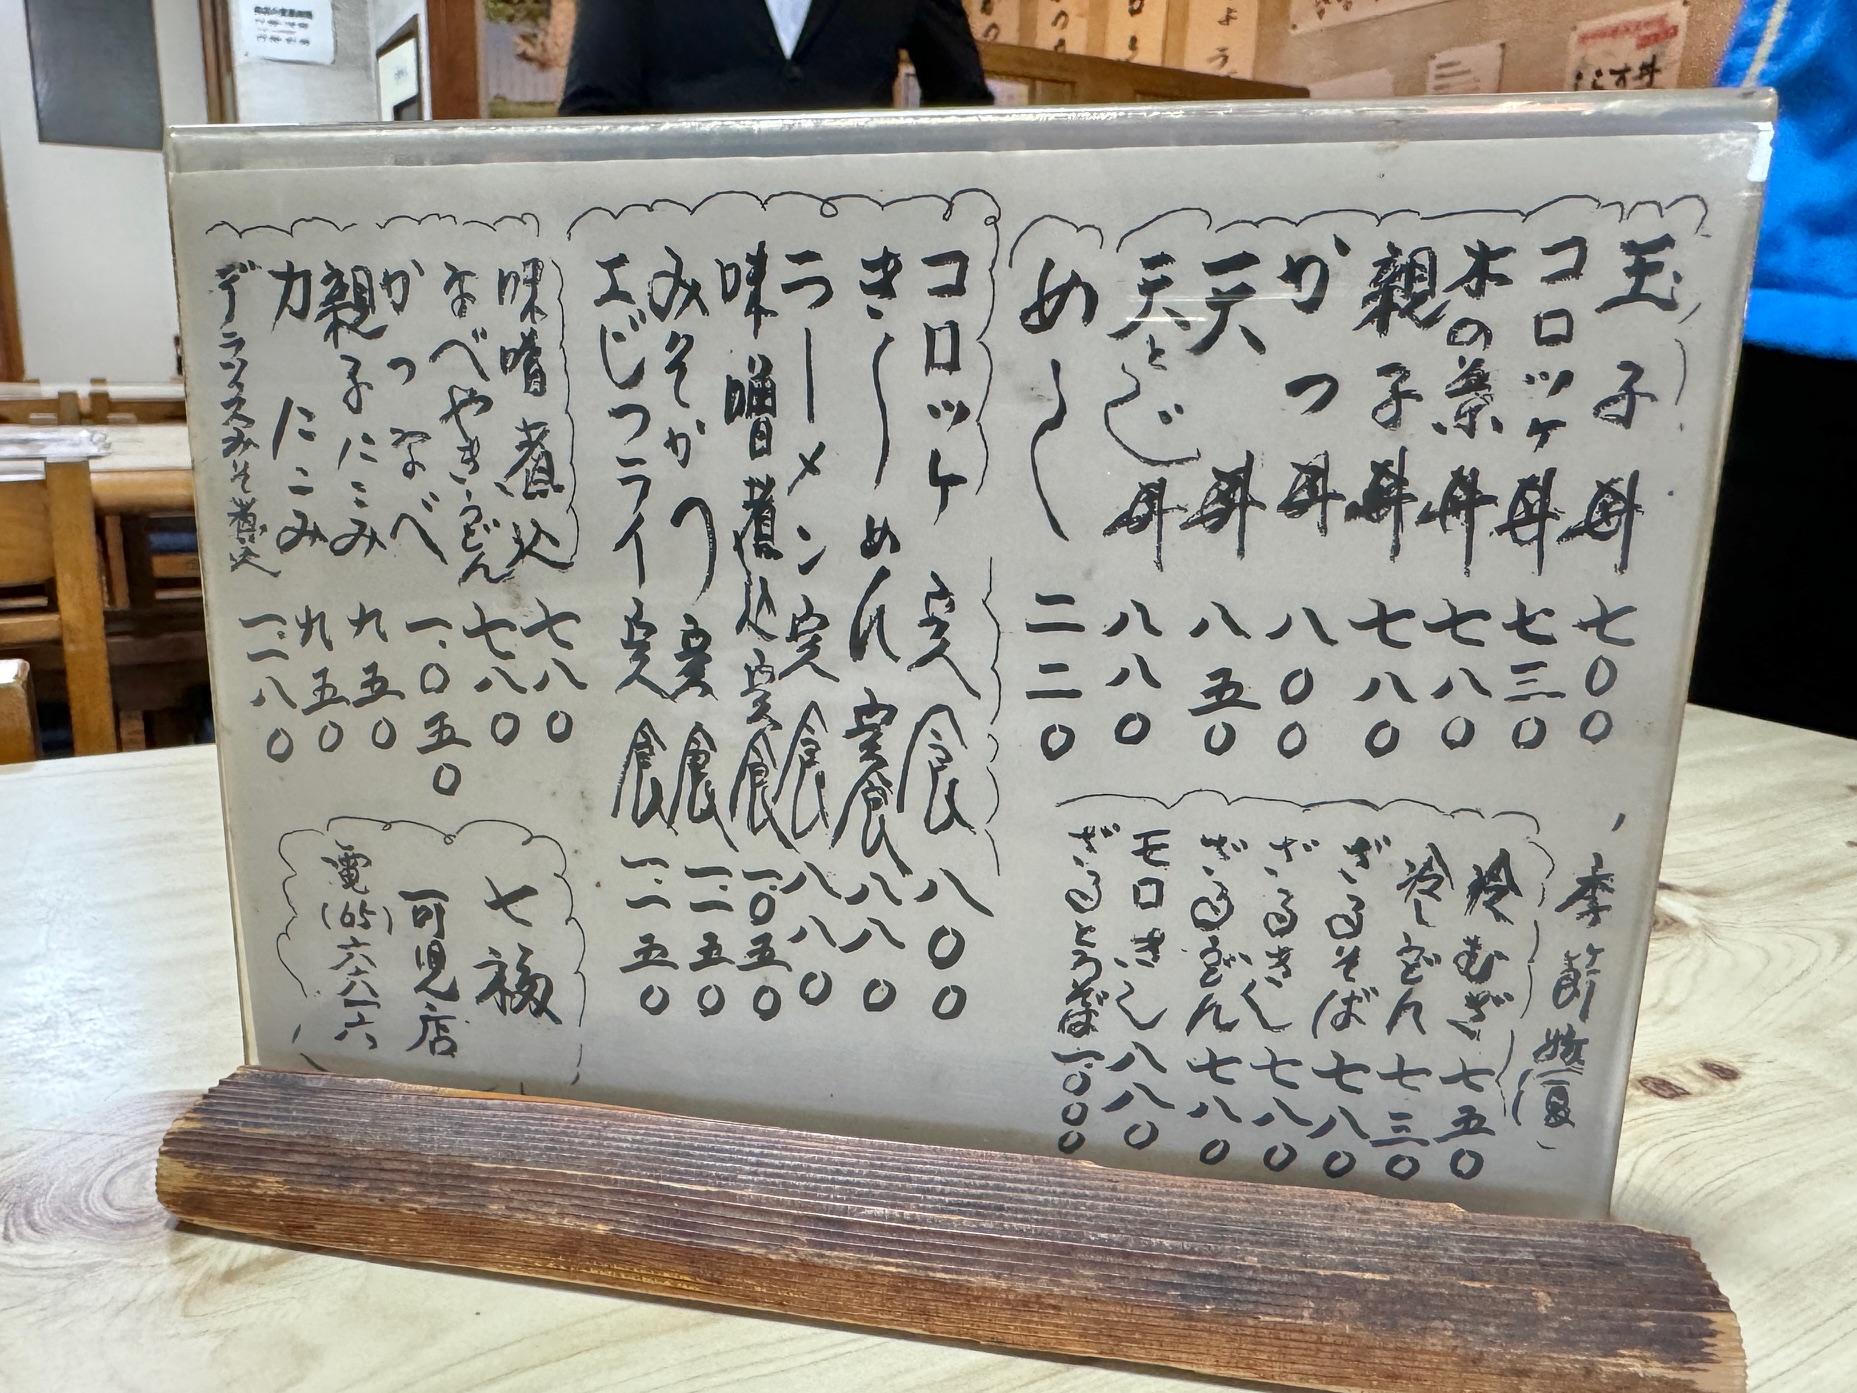 玉子丼 七〇〇
コロッケ丼 七三〇
木の葉丼 七八〇
親子丼 七八〇
かつ丼 八〇〇
天丼 八五〇
天とじ丼 八八〇
めし 二二〇
季節麺(夏)
冷むぎ 七五〇
冷しうどん 七三〇
ざるそば 七八〇
ざるきし 七八〇
ざるうどん 七八〇
モロきし 八八〇
ざるとろそば 一、〇〇〇
コロッケ定食 八〇〇
きしめん定食 八八〇
ラーメン定食 八八〇
味噌煮込定食 一、〇五〇
みそかつ定食 一、一五〇
エビフライ定食 一、一五〇
味噌煮込 七八〇
なべやきうどん 七八〇
かつなべ 一、〇五〇
親子にこみ 九五〇
力にこみ 九五〇
デラックスみそ煮込 一、一八〇
七福
可児店
電(65)六六一六